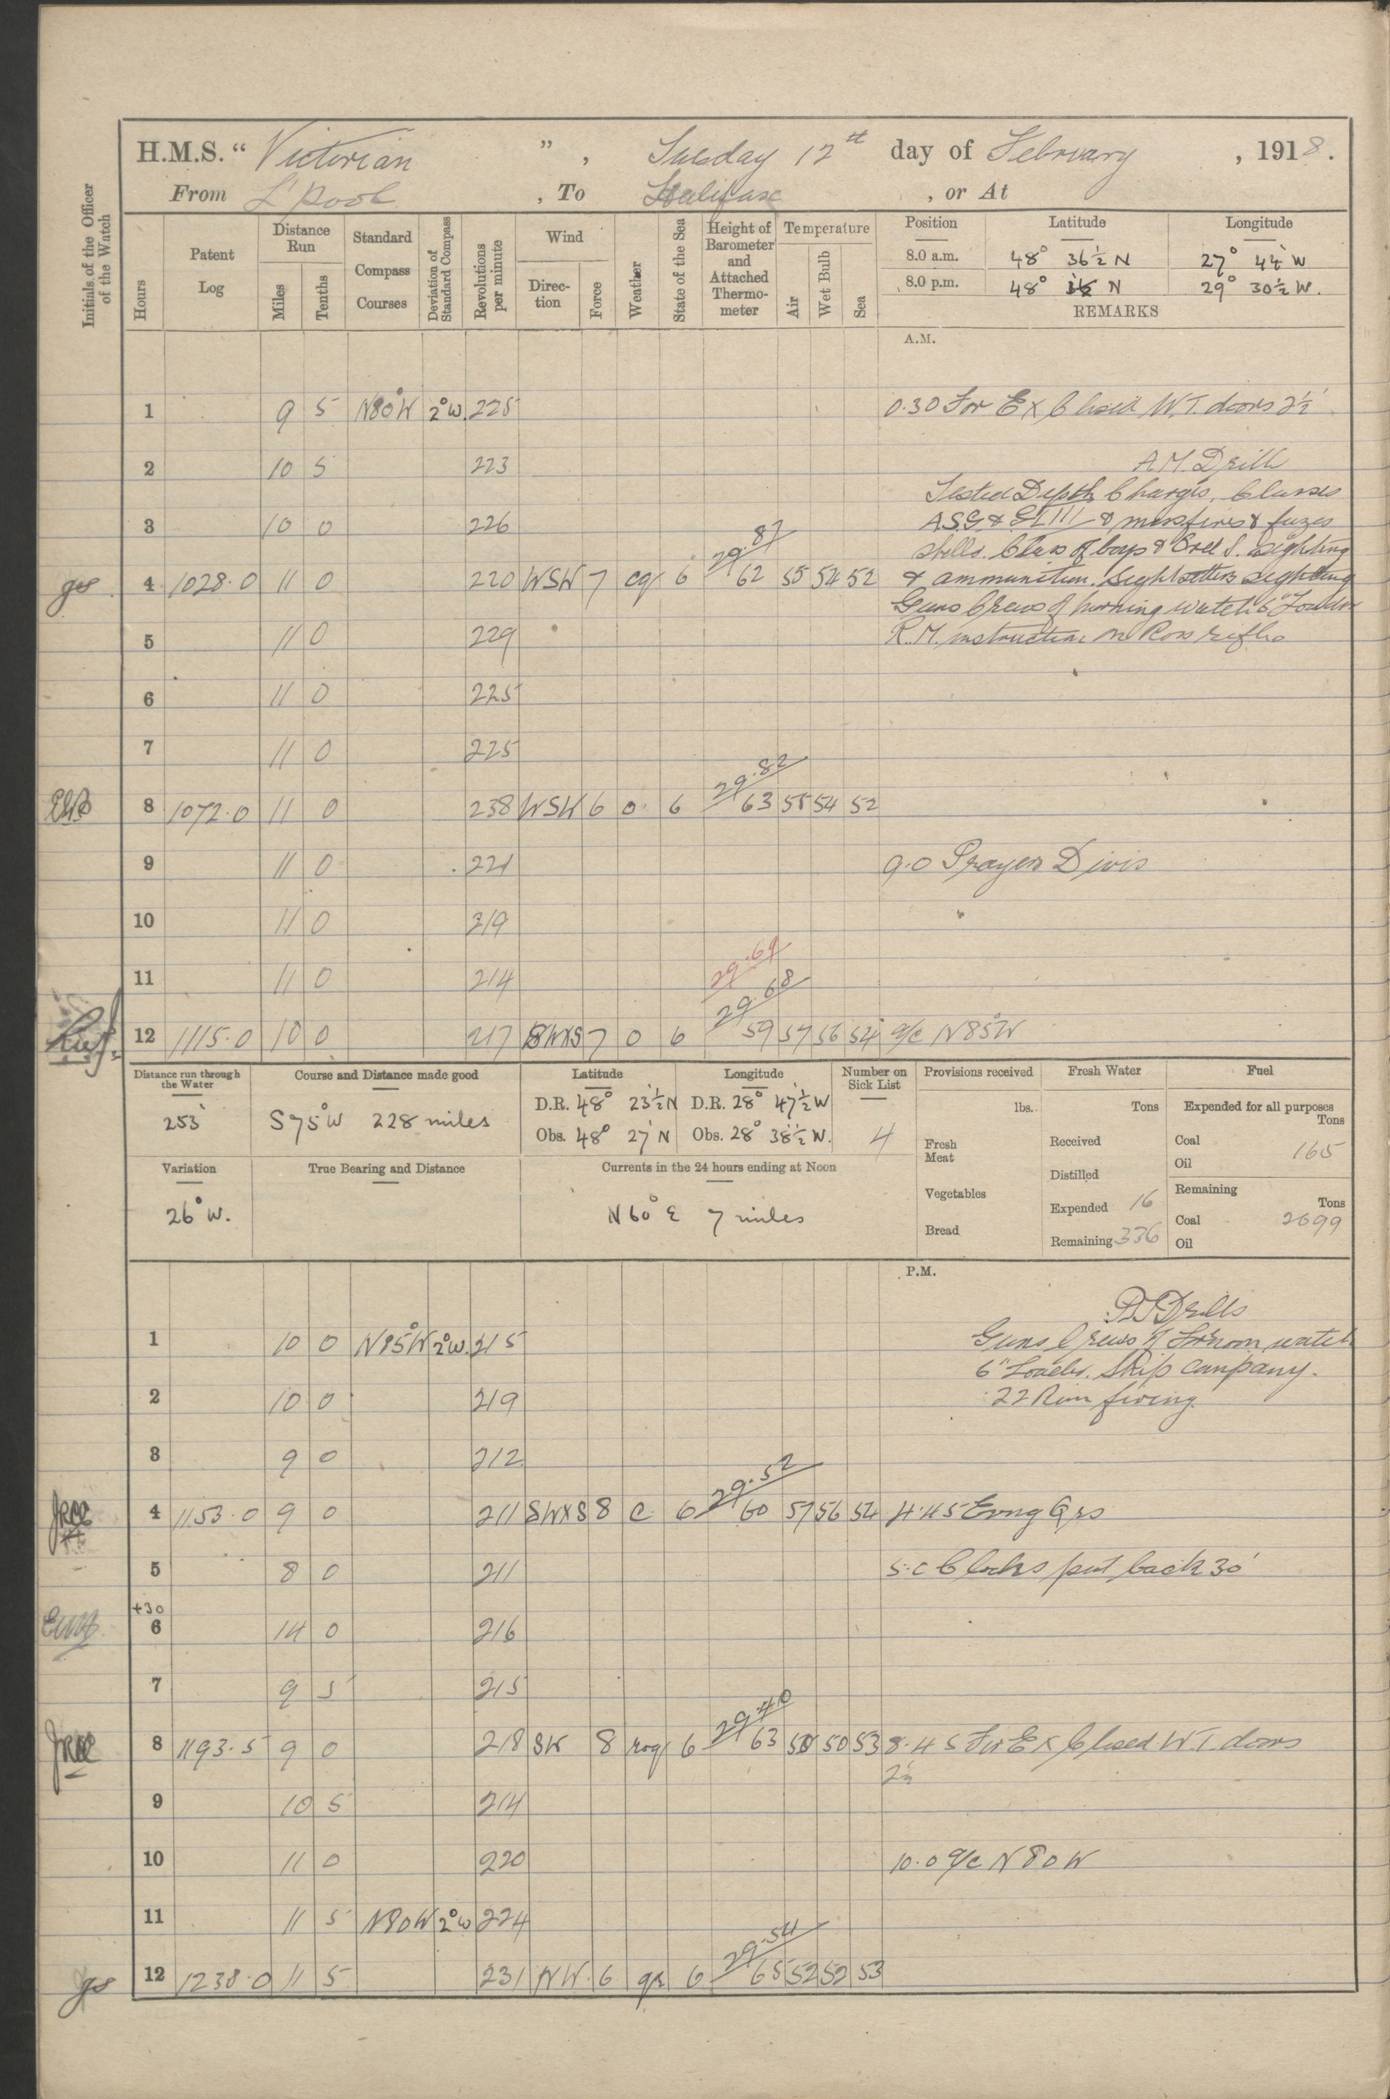 H.M.S. "Victorian", Tuesday 12th day of February, 1918.
From L'pool, To Halifax, or At
Initials of the Officer of the Watch
Hours
Patent Log
Distance Run
Miles
Tenths
Standard Compass Courses
Deviation of Standard Compass
Revolutions per minute
Wind
Direction
Force
Weather
State of the Sea
Height of Barometer and Attached Thermometer
Temperature
Air
Wet Bulb
Sea
Position Latitude Longitude
8.0 a.m. 48° 36½ N 27° 44' W
8.0 p.m. 48° N 29° 30½ W.
REMARKS
A.M.
1 9 5 N80°W 2°W. 225 0.30 For Ex Closed W.T. doors 2½'
2 10 5 223 A.M. Drill
Tested Depth Charges. Classes
3 10 0 226 ASG & GLIII & missfires & fuzes
29.87 shells. Class of boys & Ord S. Sighting
gs 4 1028.0 11 0 220 WSW 7 cq 6 62 55 54 52 & ammunition. Sightsetters Sighting
Guns Crews of morning watch 6" Loader
5 11 0 229 R.M. instruction on Ross rifle
6 11 0 225
7 11 0 225
29.82
8 1072.0 11 0 238 WSW 6 o 6 63 55 54 52
9 11 0 221 9.0 Prayers Divis
10 11 0 219
29.69
11 11 0 214
29.68
12 1115.0 10 0 217 SWxS 7 0 6 59 57 56 54 a/c N85W
Distance run through the Water
253'
Course and Distance made good
S75°W 228 miles
Latitude
D.R. 48° 23½'N
Obs. 48° 27' N
Longitude
D.R. 28° 47½'W
Obs. 28° 38½'W.
Number on Sick List
4
Provisions received
lbs.
Fresh Meat
Vegetables
Bread
Fresh Water
Tons
Received
Distilled
Expended 16
Remaining 336
Fuel
Expended for all purposes
Tons
Coal 165
Oil
Remaining
Tons
Coal 2699
Oil
Variation
26° W.
True Bearing and Distance
Currents in the 24 hours ending at Noon
N60°E 7 miles
P.M.
Drills
1 10 0 N85°W 2°W. 215 Guns Crews of Forenoon watch
6" Loader. Ship company.
2 10 0 219 .22 Rim firing
3 9 0 212
29.52
4 1153.0 9 0 211 SWxS 8 c 6 60 57 56 54 4.45 Evng Qrs
5 8 0 211 5.0 Clocks put back 30'
+30
6 14 0 216
7 9 5 215
29.40
8 1193.5 9 0 218 SW 8 roq 6 63 50 50 53 8.45 For Ex Closed W.T. doors
2½
9 10 5 214
10 11 0 220 10.0 a/c N80W
11 11 5 N80W 2°W 224
29.54
gs 12 1238.0 11 5 231 NW. 6 qr 6 65 52 52 53